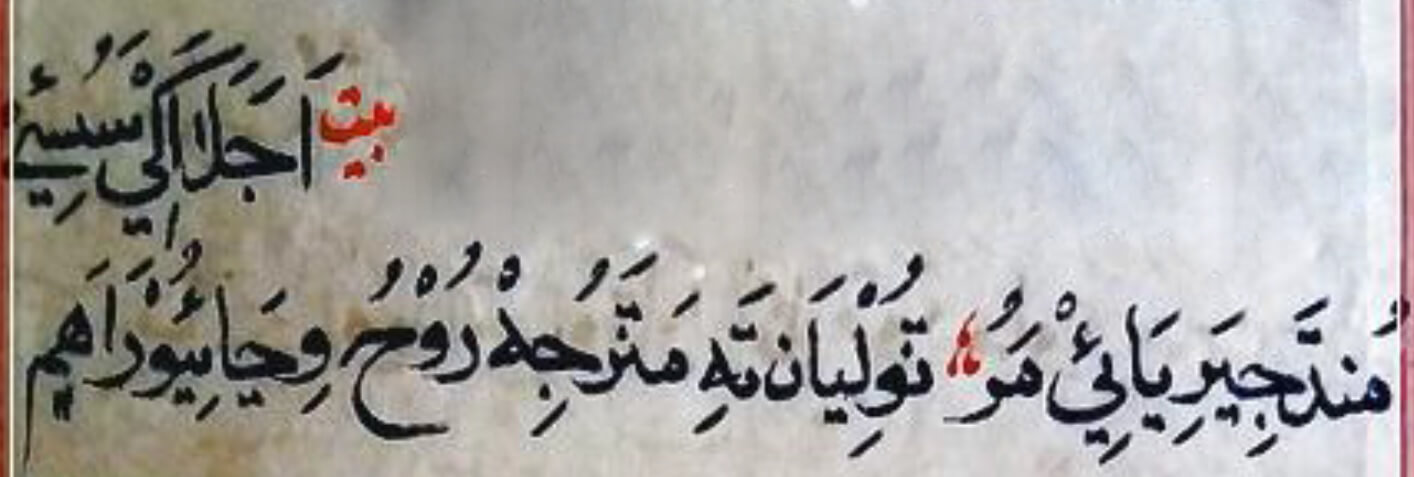 بيت اَجَلَااکِيْ سَسُئِي
مُندَّجِيَرِيَائِيْ مَرُ؛ تُوْلِيَان تَهِ مَتَرُجِهْ رُوْحُ وِجَائِيُوْرَاهِم